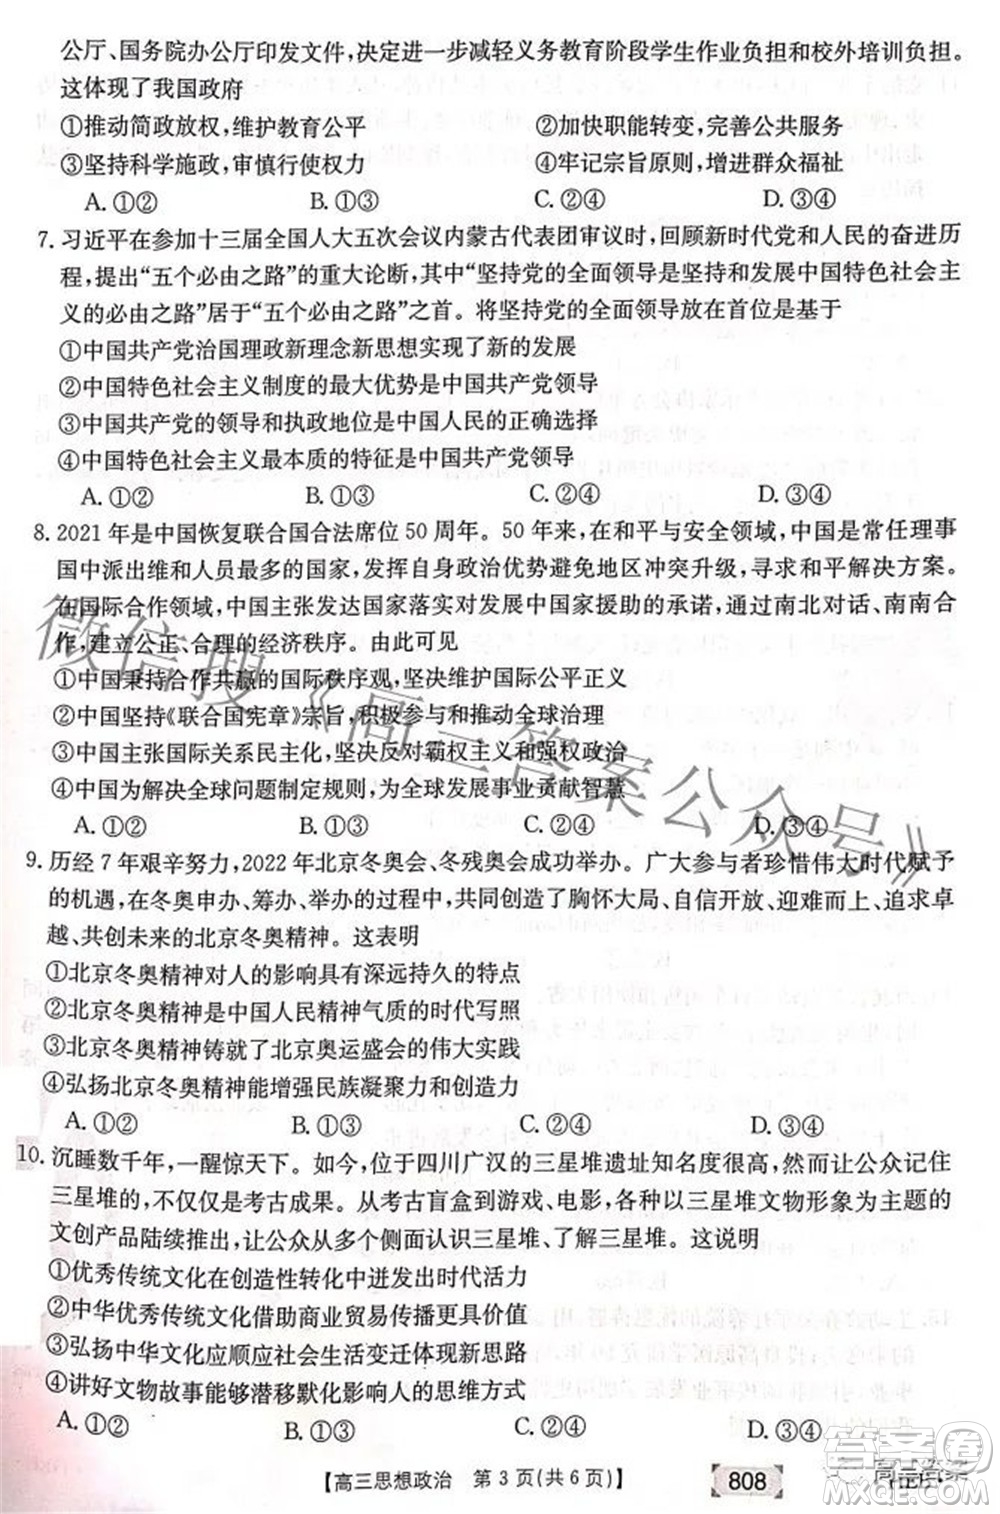 公厅、国务院办公厅印发文件,决定进一步减轻义务教育阶段学生作业负担和校外培训负担。
这体现了我国政府
①推动简政放权,维护教育公平 ②加快职能转变,完善公共服务
③坚持科学施政,审慎行使权力 ④牢记宗旨原则,增进群众福祉
A. ①② B. ①③ C. ②④ D. ③④
7. 习近平在参加十三届全国人大五次会议内蒙古代表团审议时,回顾新时代党和人民的奋进历
程,提出“五个必由之路”的重大论断,其中“坚持党的全面领导是坚持和发展中国特色社会主
义的必由之路”居于“五个必由之路”之首。将坚持党的全面领导放在首位是基于
①中国共产党治国理政新理念新思想实现了新的发展
②中国特色社会主义制度的最大优势是中国共产党领导
③中国共产党的领导和执政地位是中国人民的正确选择
④中国特色社会主义最本质的特征是中国共产党领导
A. ①② B. ①③ C. ②④ D. ③④
8. 2021年是中国恢复联合国合法席位50周年。50年来,在和平与安全领域,中国是常任理事
国中派出维和人员最多的国家,发挥自身政治优势避免地区冲突升级,寻求和平解决方案。
在国际合作领域,中国主张发达国家落实对发展中国家援助的承诺,通过南北对话、南南合
作,建立公正、合理的经济秩序。由此可见
①中国秉持合作共赢的国际秩序观,坚决维护国际公平正义
②中国坚持《联合国宪章》宗旨,积极参与和推动全球治理
③中国主张国际关系民主化,坚决反对霸权主义和强权政治
④中国为解决全球问题制定规则,为全球发展事业贡献智慧
A. ①② B. ①③ C. ②④ D. ③④
9. 历经7年艰辛努力,2022年北京冬奥会、冬残奥会成功举办。广大参与者珍惜伟大时代赋予
的机遇,在冬奥申办、筹办、举办的过程中,共同创造了胸怀大局、自信开放、迎难而上、追求卓
越、共创未来的北京冬奥精神。这表明
①北京冬奥精神对人的影响具有深远持久的特点
②北京冬奥精神是中国人民精神气质的时代写照
③北京冬奥精神铸就了北京奥运盛会的伟大实践
④弘扬北京冬奥精神能增强民族凝聚力和创造力
A. ①② B. ①③ C. ②④ D. ③④
10. 沉睡数千年,一醒惊天下。如今,位于四川广汉的三星堆遗址知名度很高,然而让公众记住
三星堆的,不仅仅是考古成果。从考古盲盒到游戏、电影,各种以三星堆文物形象为主题的
文创产品陆续推出,让公众从多个侧面认识三星堆、了解三星堆。这说明
①优秀传统文化在创造性转化中迸发出时代活力
②中华优秀传统文化借助商业贸易传播更具价值
③弘扬中华文化应顺应社会生活变迁体现新思路
④讲好文物故事能够潜移默化影响人的思维方式
A. ①② B. ①③ C. ②④ D. ③④
【高三思想政治 第3页(共6页)】
808
微信搜《高三答案公众号》
答案圈
高三答案